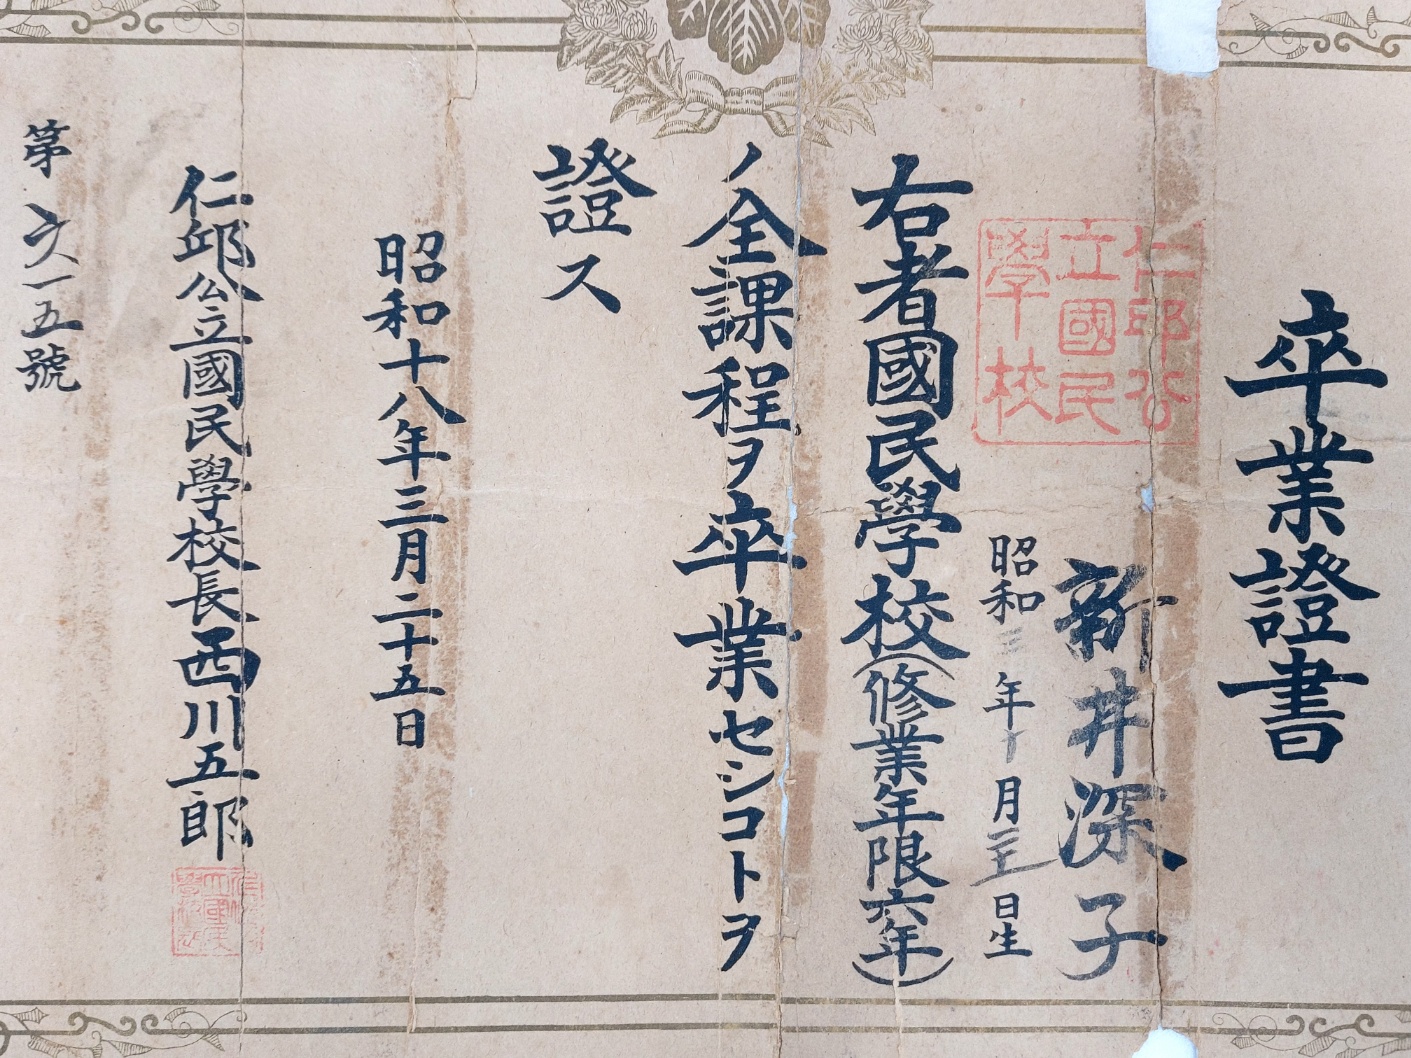 卒業證書
仁邱公
立國民
學校
新井深子
昭和三年十月二十日生
右者國民學校(修業年限六年)
ノ全課程ヲ卒業セシコトヲ
證ス
昭和十八年三月二十五日
仁邱公立國民學校長西川五郎
第 一五號